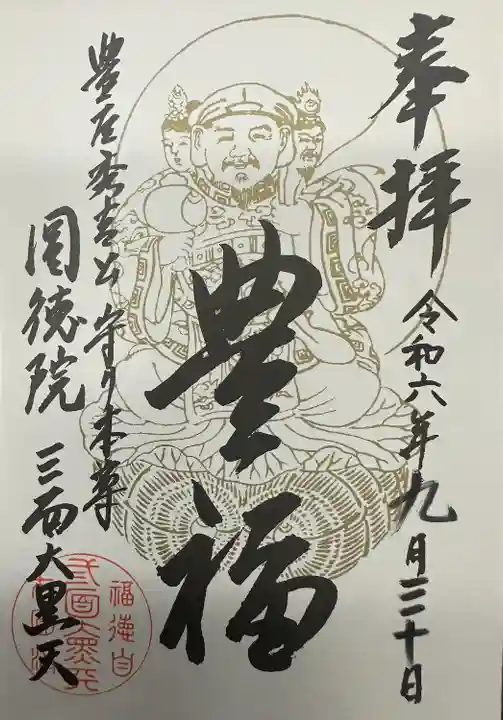 奉拝
令和六年九月三十日
豊福
豊臣秀吉公守り本尊
三面大黒天
圓徳院
三面大黒天
福徳自